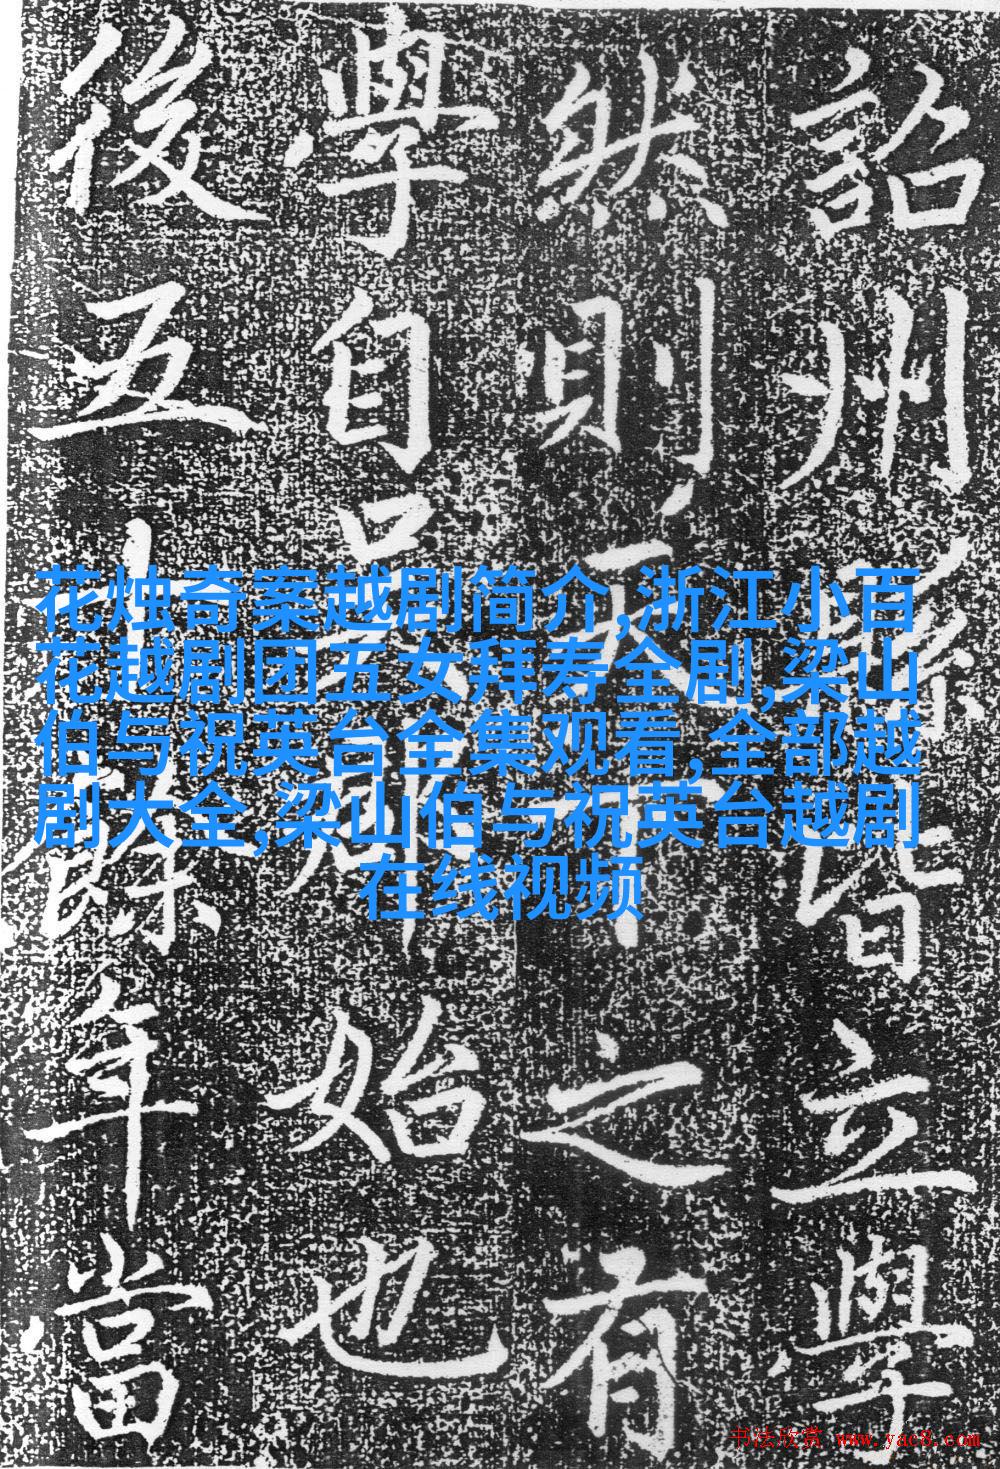 詔州縣皆立學
然則天下之有
學自吾州始也
後五十餘年當
花烛奇案越剧简介,浙江小百
花越剧团五女拜寿全剧,梁山
伯与祝英台全集观看,全部越
剧大全,梁山伯与祝英台越剧
在线视频
书法欣赏 www.yac8.com